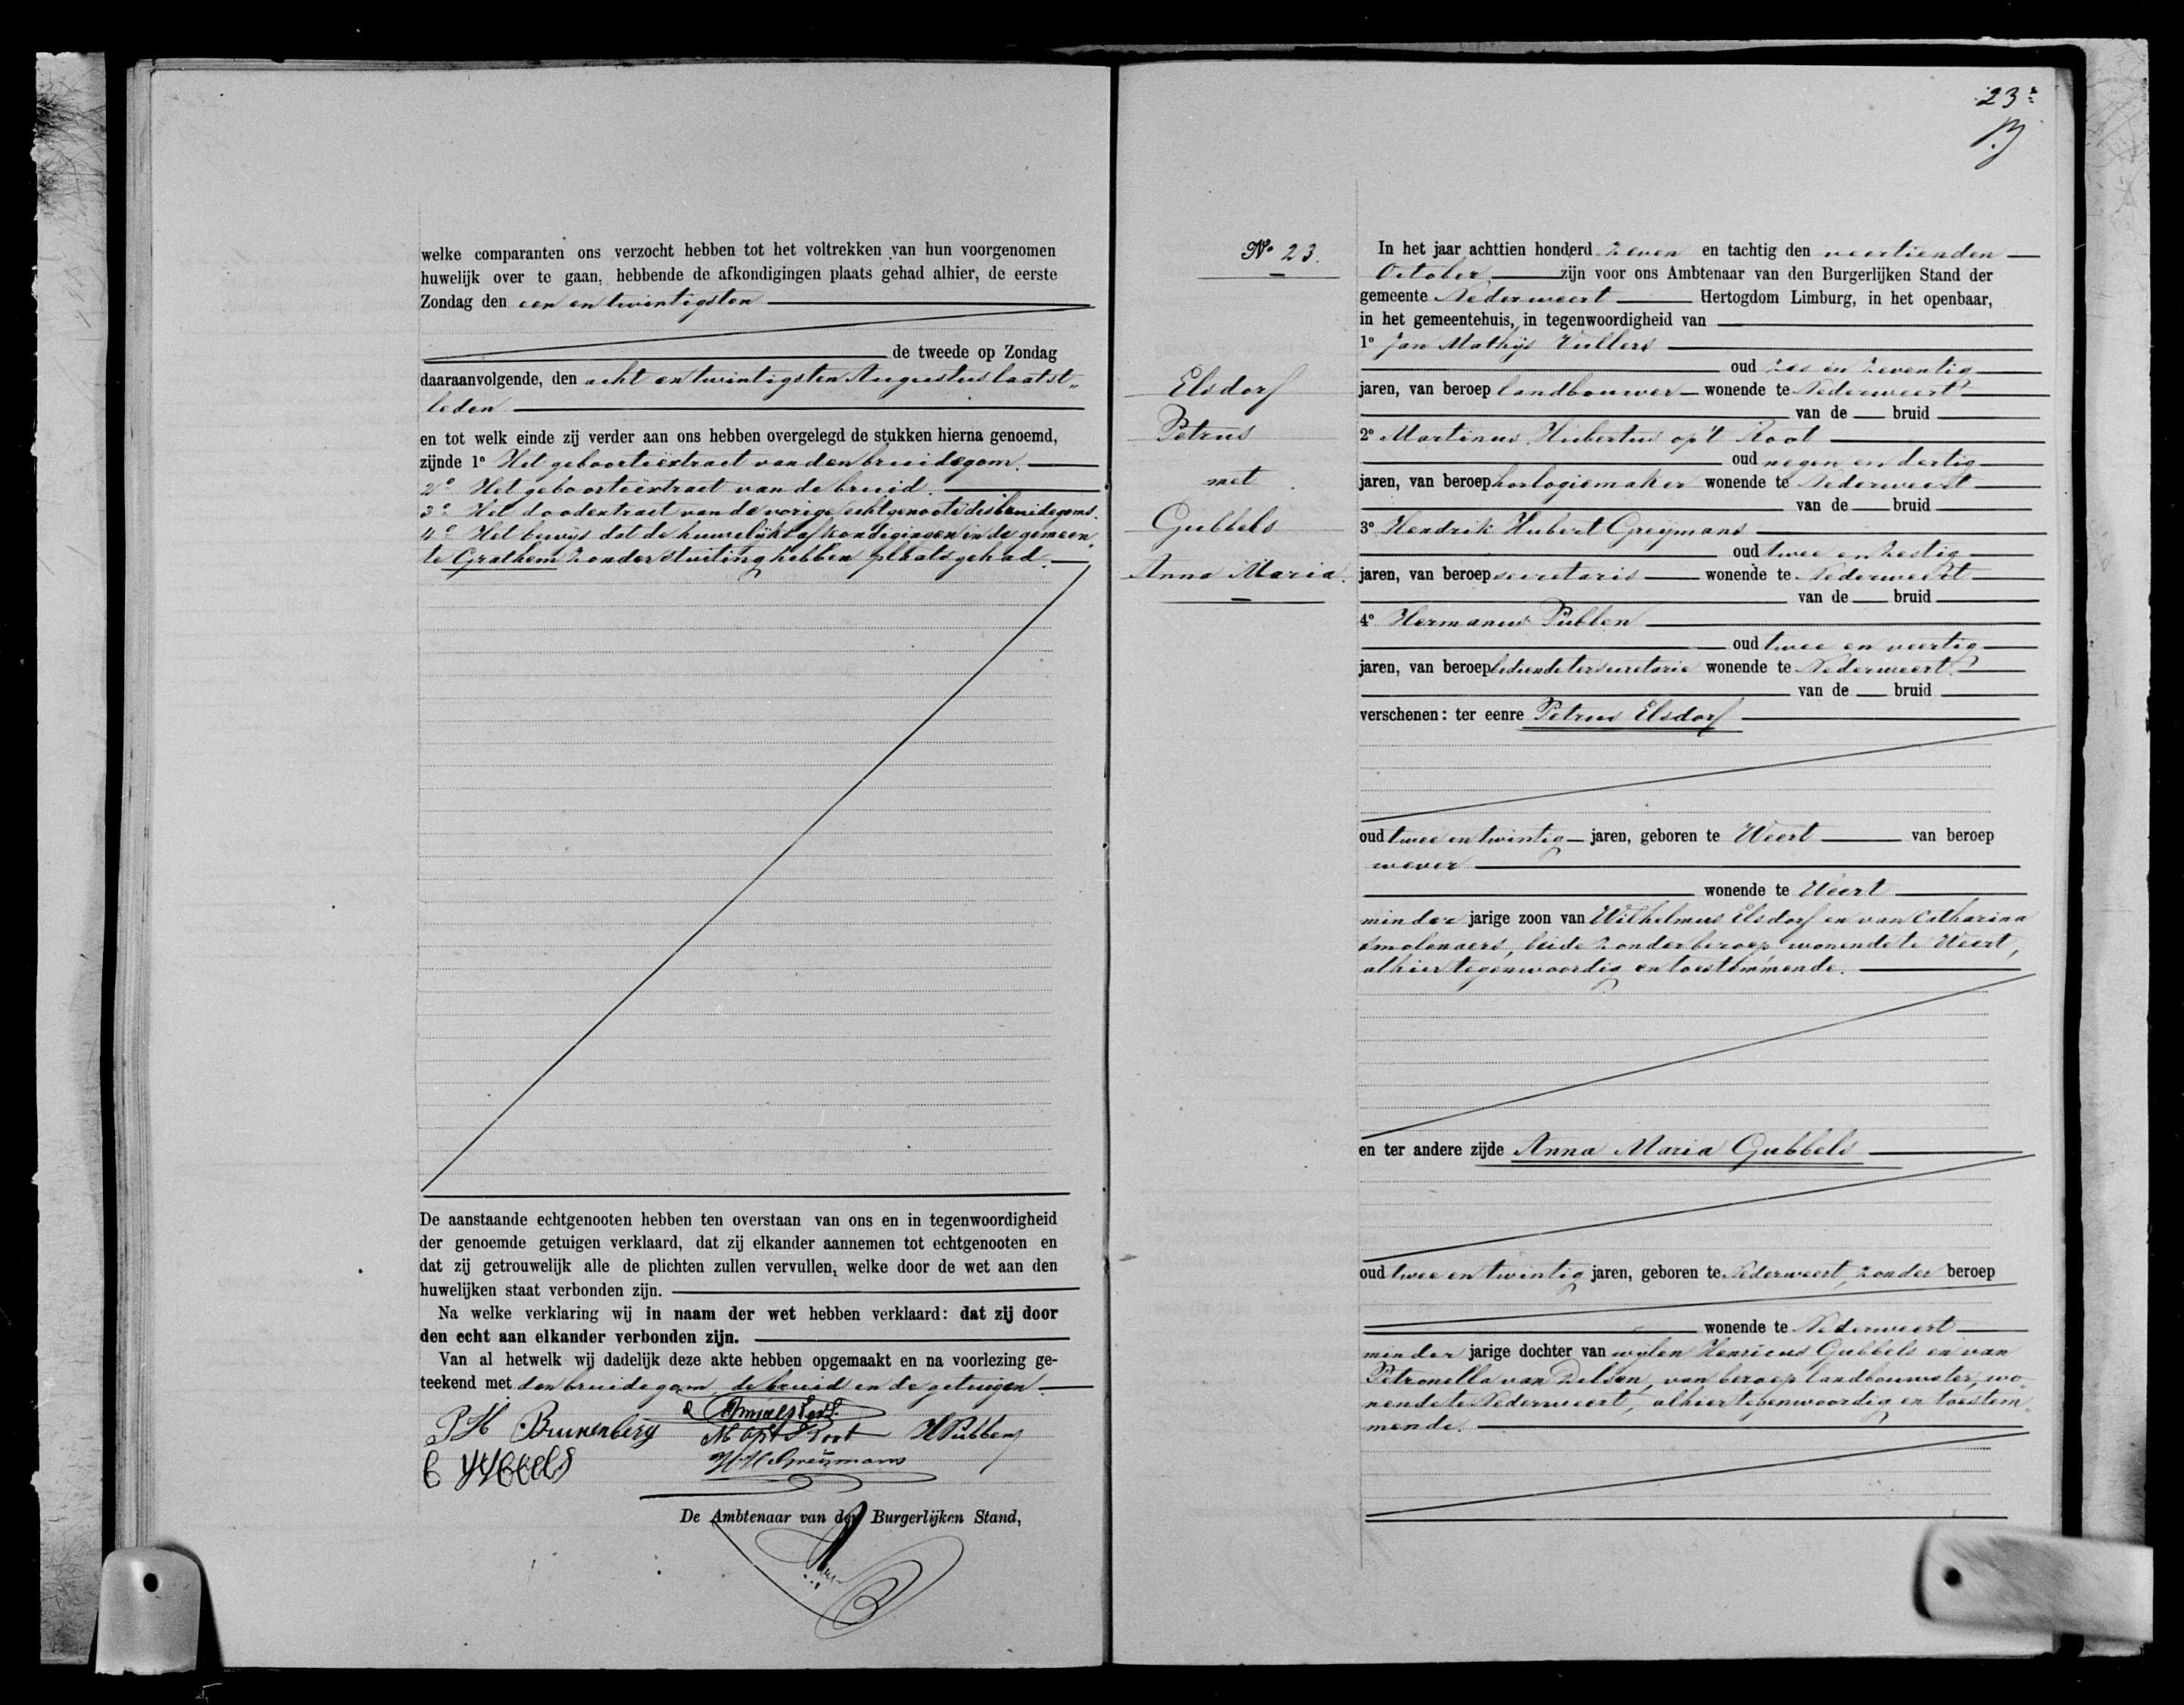 welke comparanten ons verzocht hebben tot het voltrekken van hun voorgenomen
huwelijk over te gaan, hebbende de afkondigingen plaats gehad alhier, de eerste
Zondag den een en twintigsten
de tweede op Zondag
daaraanvolgende, den acht en twintigsten Augustus laatst„
leden
en tot welk einde zij verder aan ons hebben overgelegd de stukken hierna genoemd,
zijnde 1º Het geboorteëxtract van den bruidegom.
2º Het geboorteëxtract van de bruid.
3º Het doodextract van de vorige echtgenoote des bruidegoms.
4º Het bewijs dat de huwelijksafkondigingen in de gemeen„
te Grathem zonder stuiting hebben plaats gehad.
De aanstaande echtgenooten hebben ten overstaan van ons en in tegenwoordigheid
der genoemde getuigen verklaard, dat zij elkander aannemen tot echtgenooten en
dat zij getrouwelijk alle de plichten zullen vervullen, welke door de wet aan den
huwelijken staat verbonden zijn.
Na welke verklaring wij in naam der wet hebben verklaard: dat zij door
den echt aan elkander verbonden zijn.
Van al hetwelk wij dadelijk deze akte hebben opgemaakt en na voorlezing ge-
teekend met den bruidegom, de bruid en de getuigen.
P H Brunenberg M op't Root HPubben
H H Greijmans
De Ambtenaar van den Burgerlijken Stand,
23
Nº 23.
Elsdorf
Petrus
met
Gubbels
Anna Maria.
In het jaar achttien honderd zeven en tachtig den veertienden
October zijn voor ons Ambtenaar van den Burgerlijken Stand der
gemeente Nederweert Hertogdom Limburg, in het openbaar,
in het gemeentehuis, in tegenwoordigheid van
1º Jan Mathijs Vullers
oud zes en zeventig
jaren, van beroep landbouwer wonende te Nederweert
van de bruid
2º Martinus Hubertus op't Root
oud negen en dertig
jaren, van beroep horlogiemaker wonende te Nederweert
van de bruid
3º Hendrik Hubert Greijmans
oud twee en zestig
jaren, van beroep secretaris wonende te Nederweert
van de bruid
4º Hermanus Pubben
oud twee en veertig
jaren, van beroep bediende ter secretarie wonende te Nederweert
van de bruid
verschenen: ter eenre Petrus Elsdorf
oud twee en twintig jaren, geboren te Weert van beroep
wever
wonende te Weert
minder jarige zoon van Wilhelmus Elsdorf en van Catharina
Smolenaers, beide zonder beroep wonende te Weert,
alhier tegenwoordig en toestemmende.
en ter andere zijde Anna Maria Gubbels
oud twee en twintig jaren, geboren te Nederweert, zonder beroep
wonende te Nederweert
minder jarige dochter van wijlen Henricus Gubbels en van
Petronella van Deursen, van beroep landbouwster, wo„
nende te Nederweert, alhier tegenwoordig en toestem„
mende.